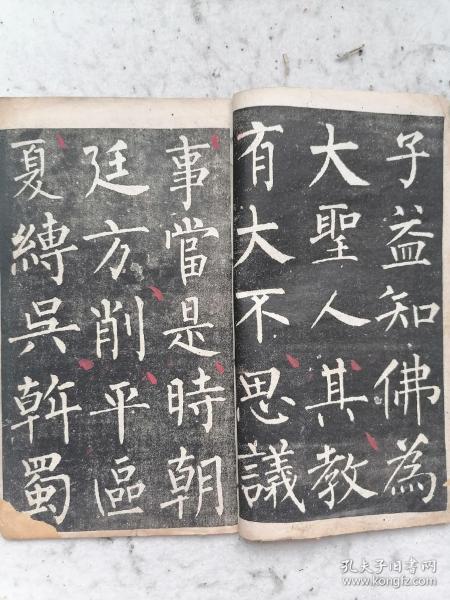 子益知佛為
大聖人其教
有大不思議
事當是時朝
廷方削平區
夏縛吳斡蜀
孔夫子旧书网
www.kongfz.com